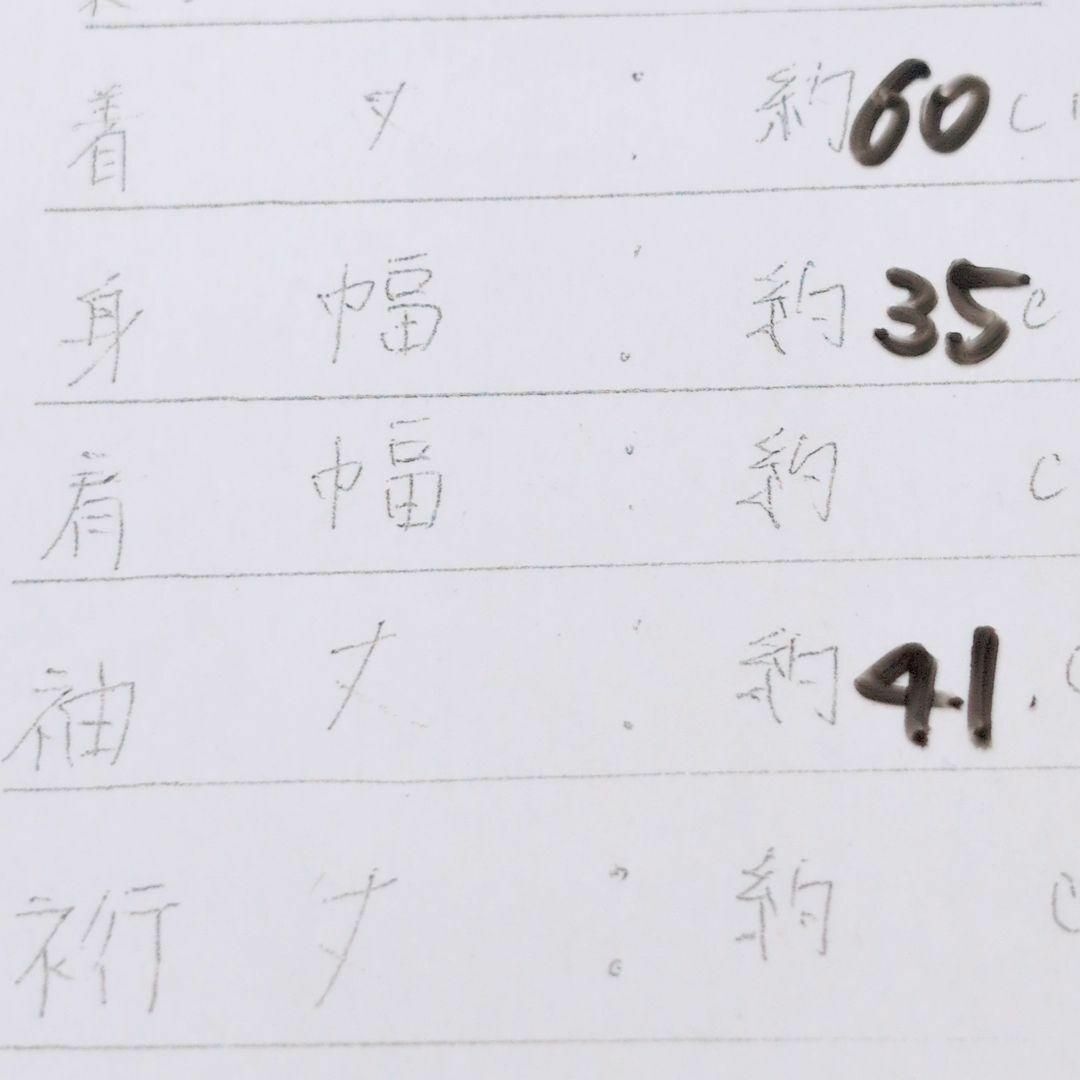 着丈:約60c
身幅:約35c
肩幅:約 c
袖丈:約41.c
裄丈:約 c